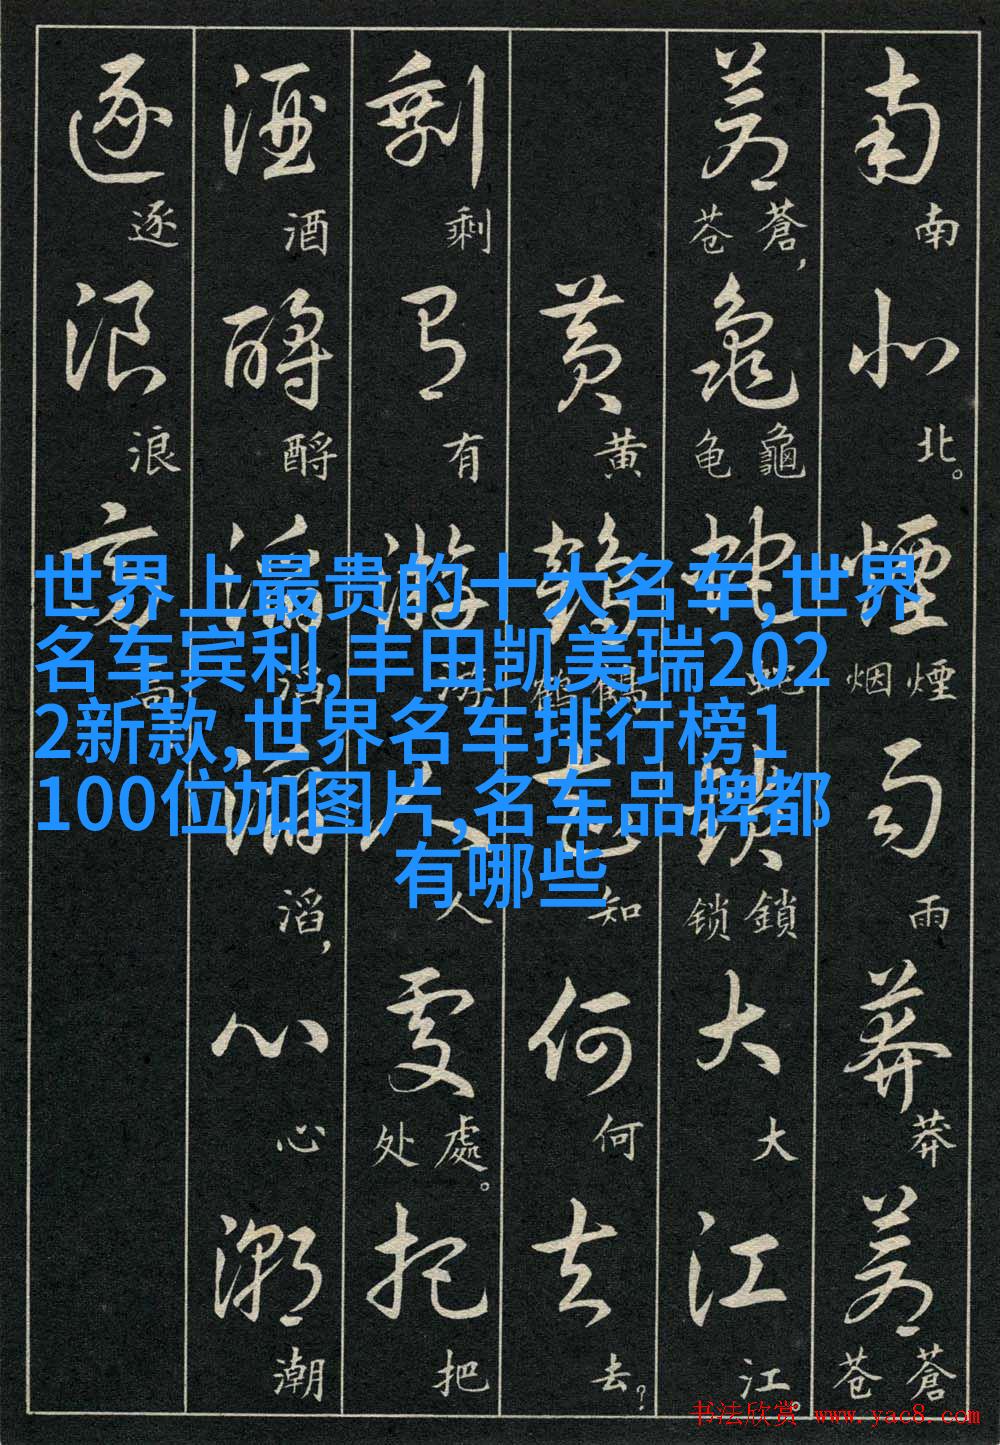 世界上最贵的十大名车,世界
名车宾利,丰田凯美瑞202
2新款,世界名车排行榜1
100位加图片,名车品牌都
有哪些
南北煙雨莽蒼
南北。煙烟雨莽蒼苍
蒼龜蛇鎖大江
蒼苍,龜龟蛇鎖锁大江。
黄鹤知何去
黄鶴鹤知何去?
剩有游人處把
剩有游人處处。把
酒酹滔滔心潮
酒酹滔滔,心潮
逐浪高
逐浪高
书法欣赏 www.yac8.com